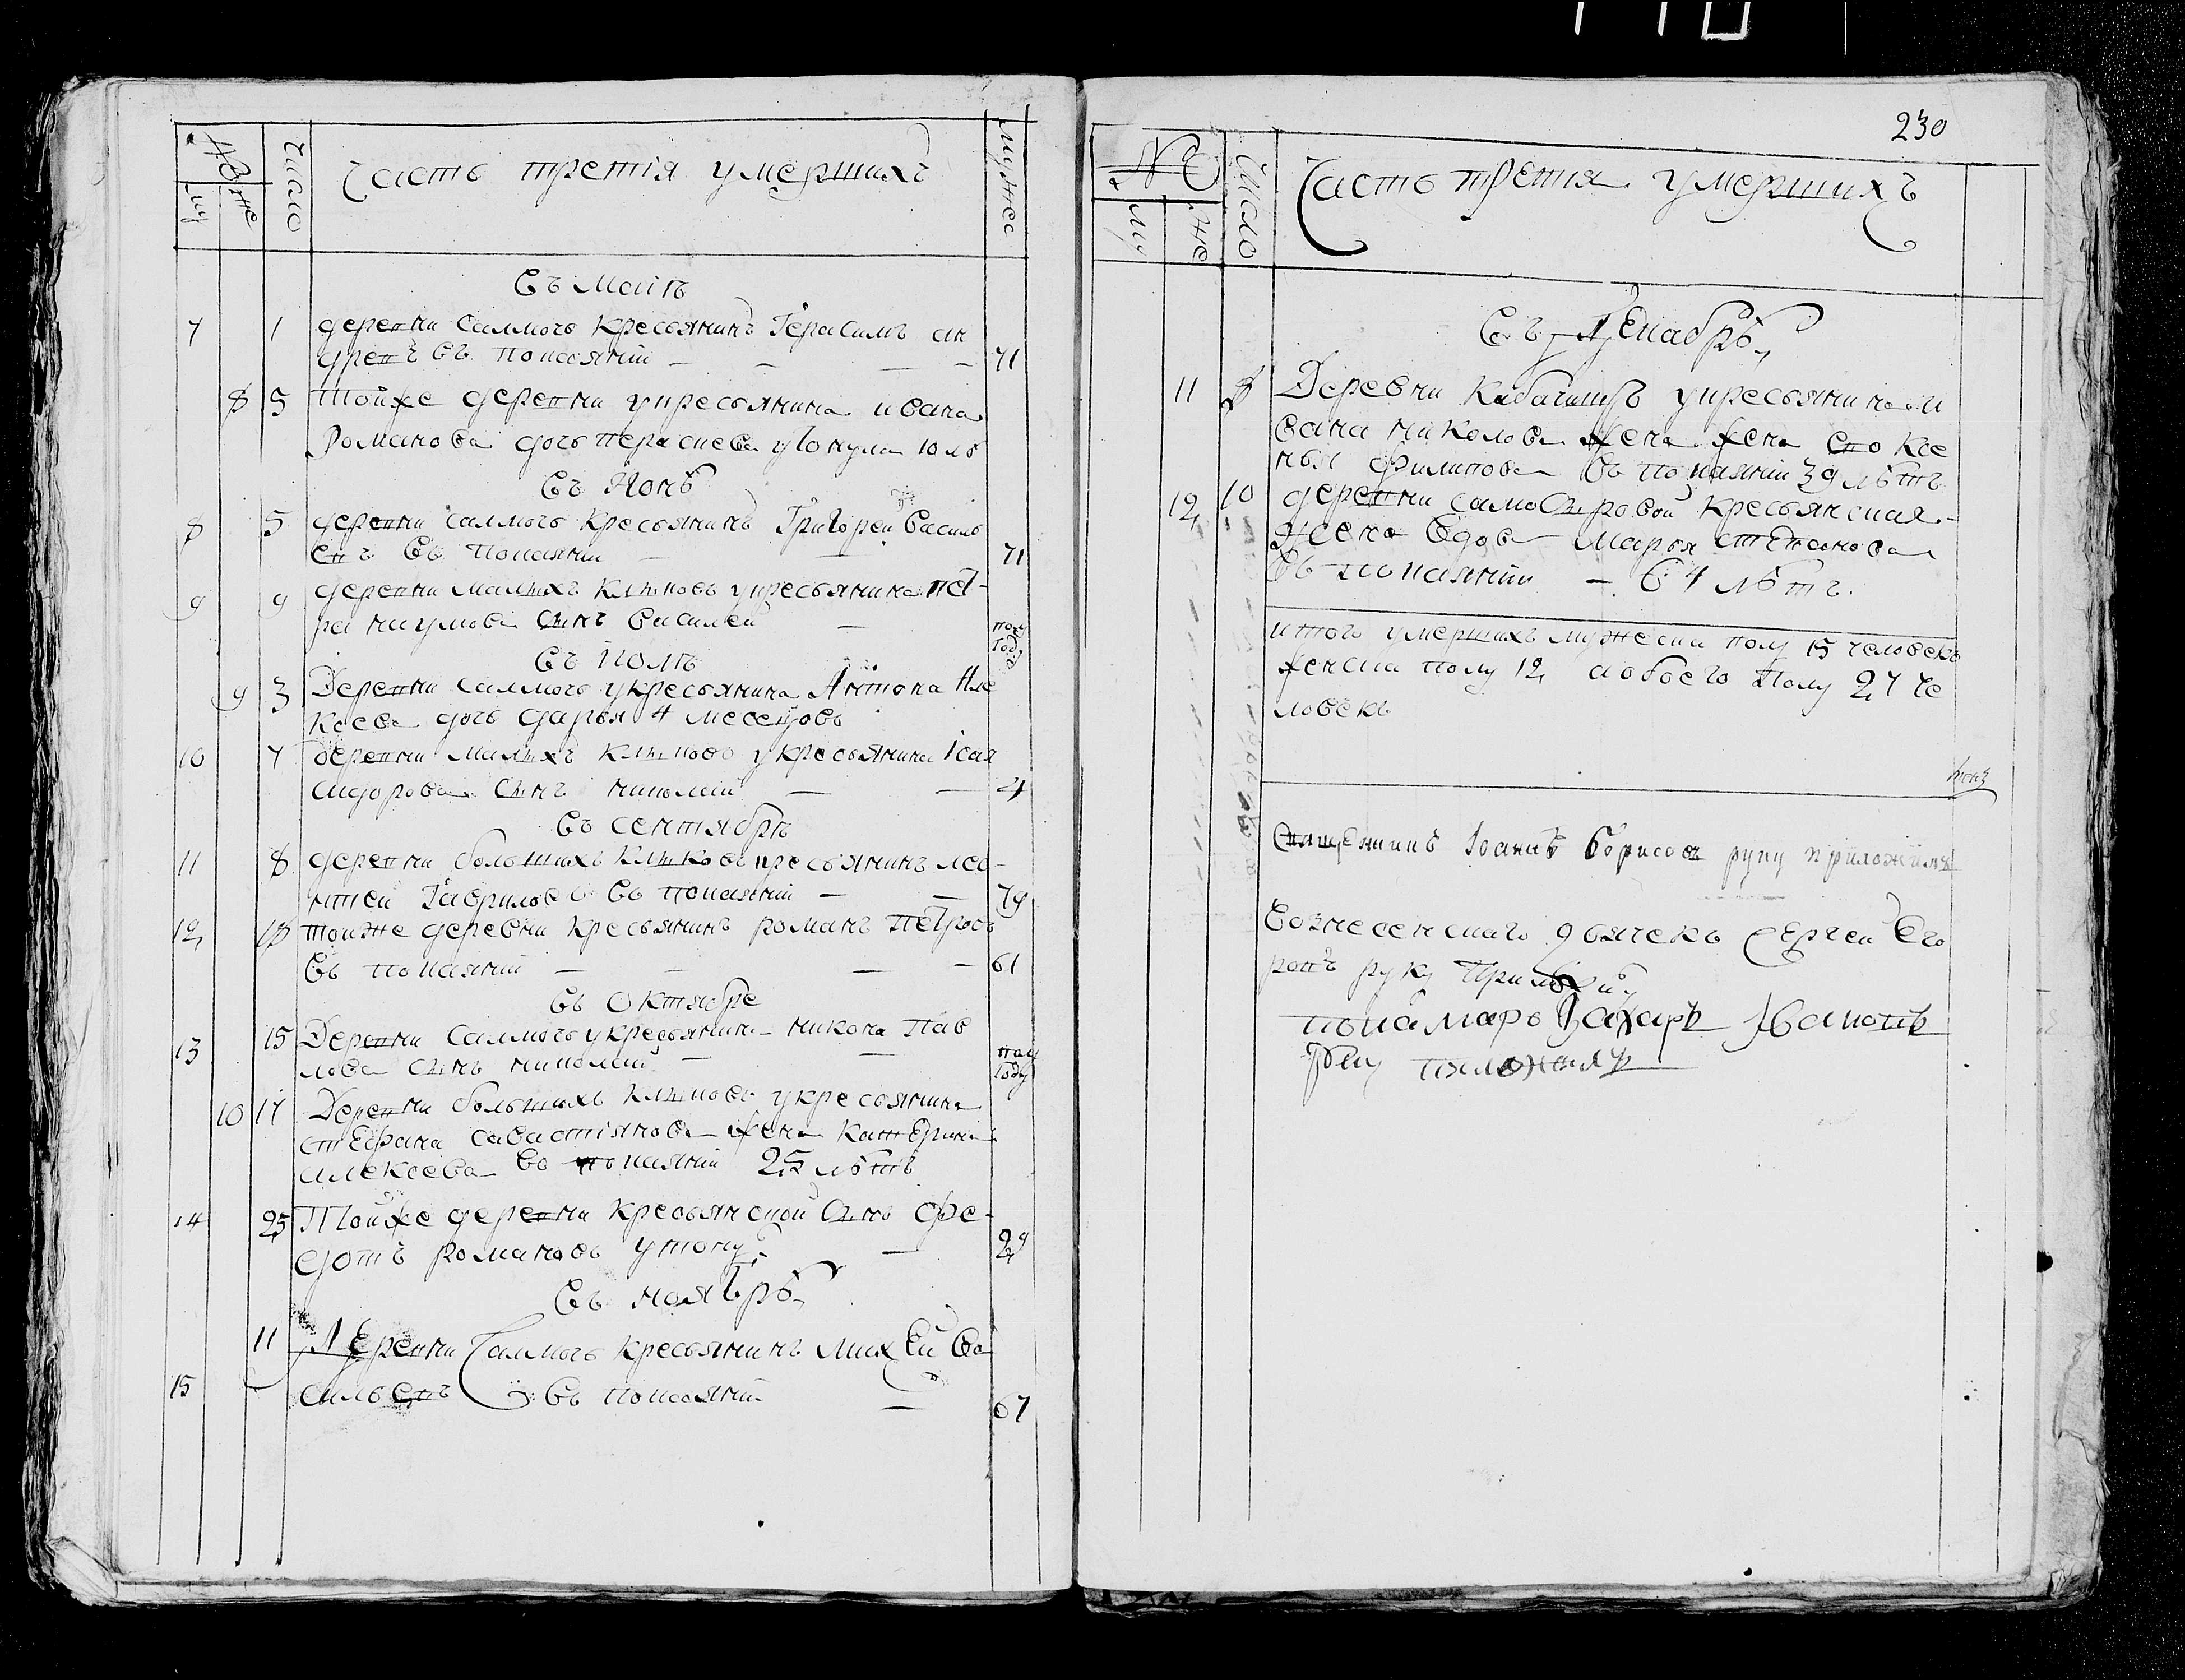 №
му
же
число
часть третiя умершихъ
мужес
Въ маiѣ
7 1 деревни саммочь крестьянинъ Герасимъ ан
древъ въ покаянiи 71
8 5 тойже деревни укрестьянина ивана
романова дочь утонула 10 лѣ
8 5 деревни саммочь крестьянинъ Григореи василь
евъ въ покаянiи 71
9 9 деревни малыхъ клыковъ укрестьянина пет-
ра наумова сынъ василеи пол
году
въ iюлѣ
9 3 Деревни саммочь укрестьянина Антона Але
ксеева дочь дарья 4 месецовъ
10 7 деревни малыхъ клыковъ укрестьянина iсая
сидорова сынъ николаи 4
въ сентябрѣ
11 8 деревни большихъ клыковъ кресьянинъ лео-
нтеи Гаврилов въ покаянiи 79
12 18 тоиже деревни кресьянинъ романъ петровъ
въ покаянiи 61
въ Октябре
13 15 Деревни саммочь укресьянина никона Пав
лова сынъ николаи пол
году
10 17 Деревни большихъ клыковъ укресьянина
стефана савастiянова жена катерина
алексеева во покаянiи 25 лѣтъ
14 25 Тойже деревни кресьянской сынъ Фе-
дотъ романовъ утону 29
Въ ноябрѣ
11 Деревни Саммочь кресьянинъ Михеи Ва
15 сильевъ въ покаянiи 67
230
№
му
же
Число
Часть третiя умершихъ
Въ Декабрѣ
11 8 Деревни укресьянина и
вана николова жена жена ево Ксе
нья филипова въ покаянiи 39 лѣтъ
12 10 деревни кресьянская
жена вдова Марья степанова
въ покаянiи 64 лѣтъ.
итого умершихъ мужеска полу 15 человекъ
женска полу 12 аобоего полу 27 че
ловекъ
Священникъ Iоаннъ Борисовъ руку приложилъ
вознесенскаго дьячекъ Сергеи Его
ровъ руку
понамарь Захаръ Ивановъ
руку